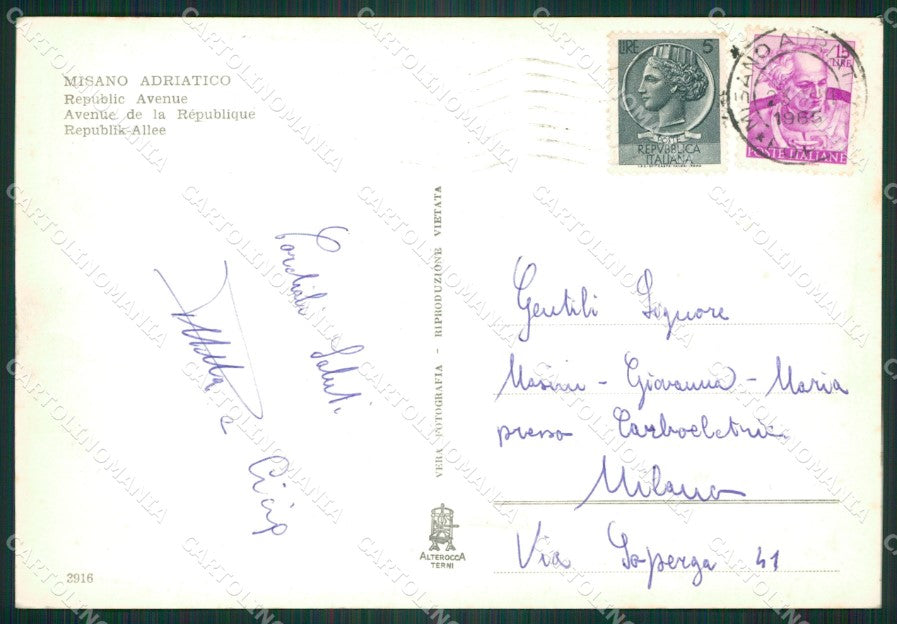 MISANO ADRIATICO
Republic Avenue
Avenue de la République
Republik-Allee
LIRE 5
POSTE
REPVBBLICA
ITALIANA
15
LIRE
POSTE ITALIANE
MISANO ADRIATICO
1965
Cordiali Saluti
VERA FOTOGRAFIA - RIPRODUZIONE VIETATA
Gentili Signore
Masini - Giovanna - Maria
presso Carboelctric
Milano
Via Soperga 41
ALTEROCCA
TERNI
2916
CARTOLINOMANIA